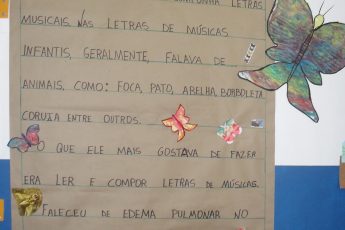 COMPUNHA LETRAS
MUSICAIS. NAS LETRAS DE MÚSICAS
INFANTIS, GERALMENTE, FALAVA DE
ANIMAIS, COMO: FOCA, PATO, ABELHA, BORBOLETA
CORUJA ENTRE OUTROS.
O QUE ELE MAIS GOSTAVA DE FAZER
ERA LER E COMPOR LETRAS DE MÚSICAS.
FALECEU DE EDEMA PULMONAR NO